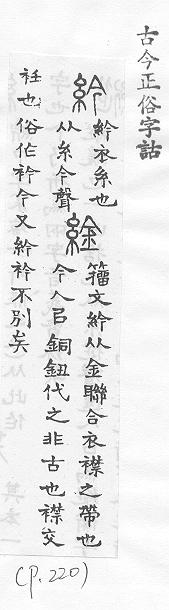 古今正俗字詁
紟 紟衣糸也
从糸今聲 䋮 籀文紟从金聯合衣襟之帶也
今人㠯銅鈕代之非古也襟交
衽也俗作衿今又紟衿不別矣
(P.220)